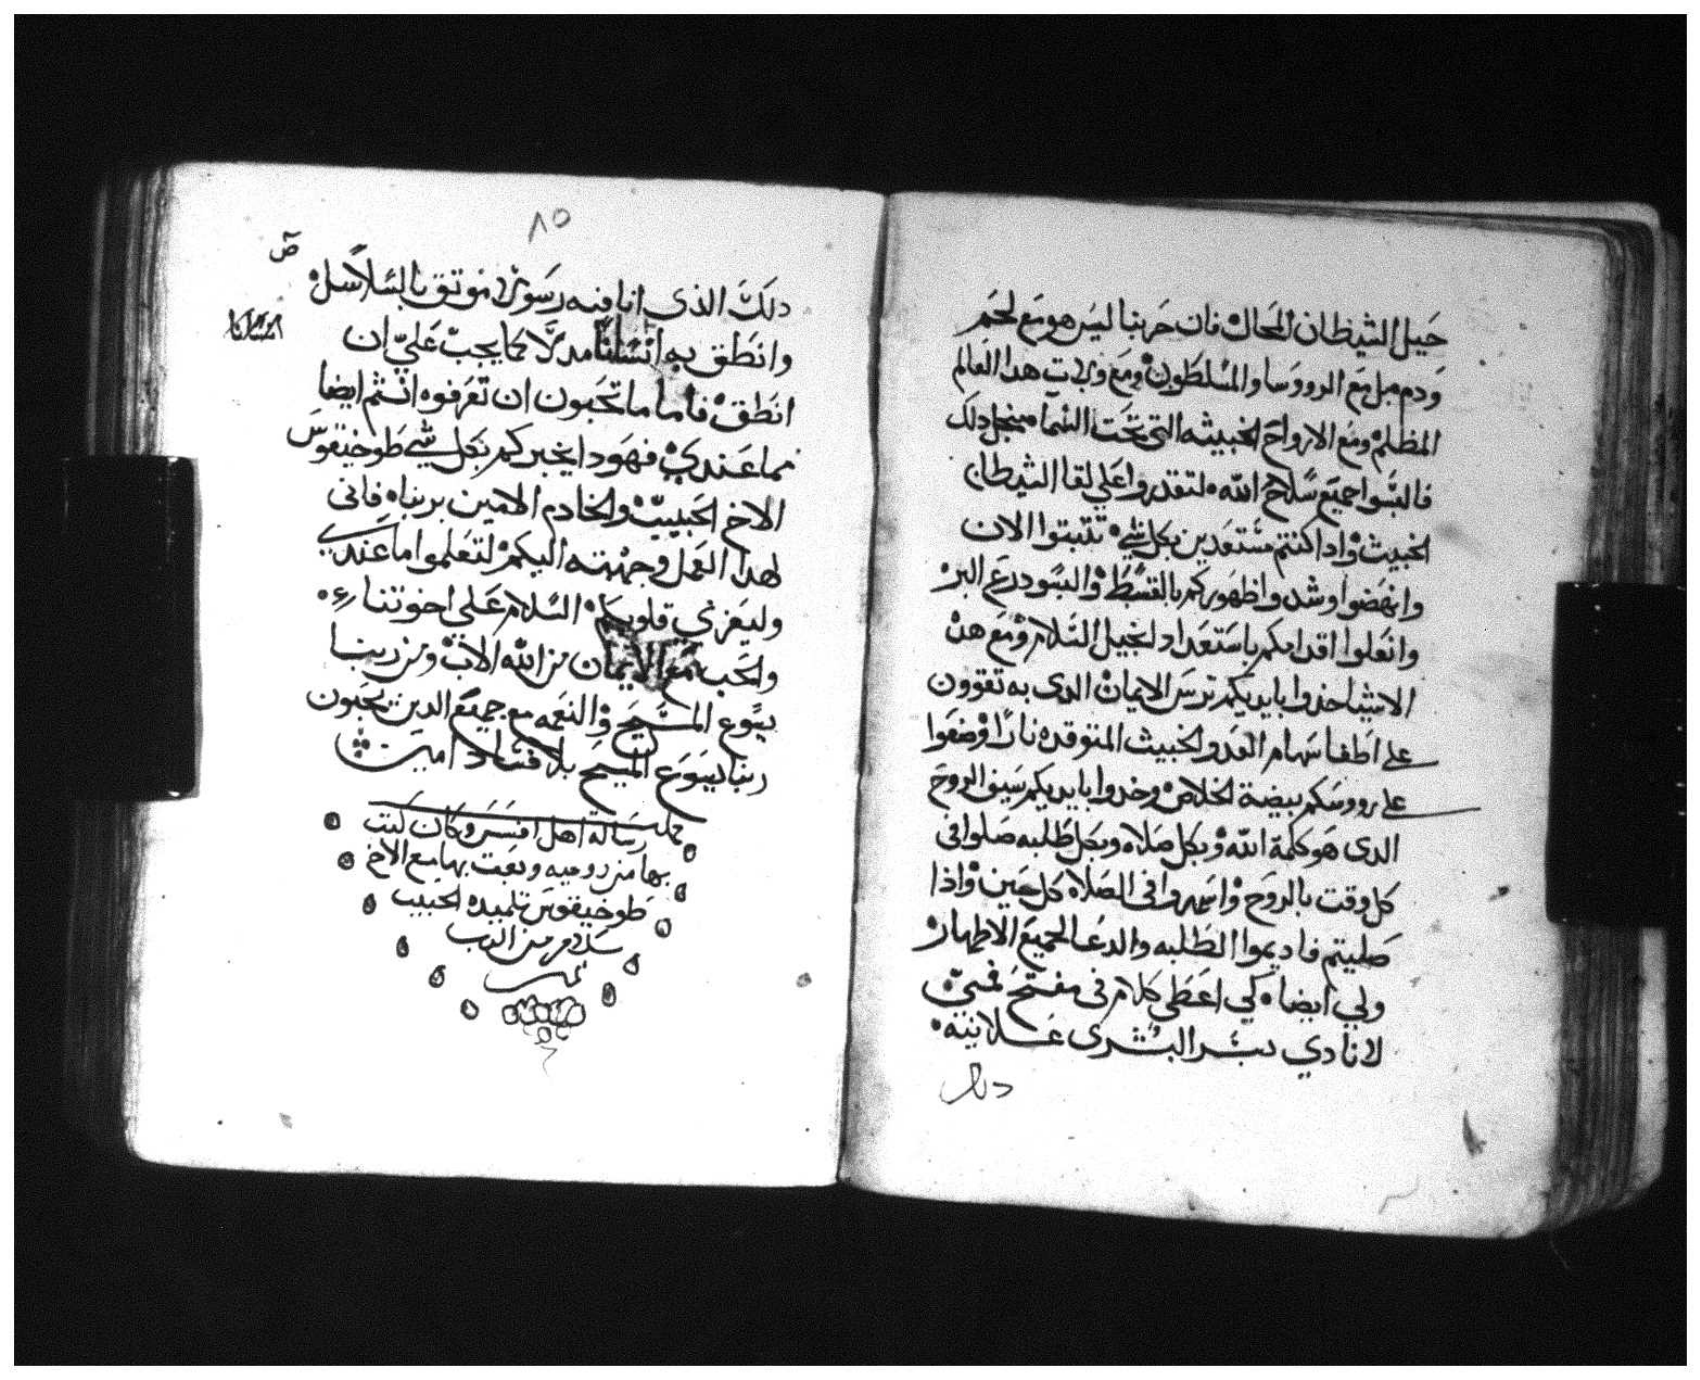 حيل الشيطان المحال فان حربنا ليس هو مع لحم
ودم بل مع الرووسا والمسلطون ومع وبىت هدا العالم
المظلم ومع الارواح الخبيثه التي تحت السما من اجل دلك
فالبسوا جميع سلاح الله لتقدروا علي لقا الشيطان
الخبيث وادا كنتم مستعدين بكل شي تتبتوا الان
وانهضوا وشدوا ظهوركم بالقسط والبسو درع البر
وانعلوا اقدامكم باستعداد انجيل السلام ومع هده
الاشيا خدوا بايديكم ترس الايمان الدى به تقوون
على اطفا سهام العدو الخبيث المتوقده نارا وضعوا
على رووسكم بيضة الخلاص وخدوا بايديكم سيف الروح
الدى هو كلمة الله وبكل صلاه وبكل طلبه صلوا فى
كل وقت بالروح واسهروا فى الصلاه كل حين واذا
صليتم فاديموا الطلبه والدعا لجميع الاطهار
ولي ايضا كي اعطى كلام فى مفتح فمي
لانادي بسر البشرى علانيه
دلك
٨٥
ص
دلك الذى انا فيه رسول موتق بالسلاسل
وانطق به انسانا مدلا كما يجب علي ان
انسانا
انطق فاما ما تحبون ان تعرفوه انتم ايضا
مما عندي فهودا يخبركم بكل شي طوخيقوس
الاخ الحبيب والخادم الامين بربنا فانى
لهدا العمل وجهته اليكم لتعلموا ما عندي
وليعزي قلوبكم السلام على اخوتنا
والحب مع الايمان من الله الاب ومن ربنا
يسوع المسيح والنعمه مع جميع الدين يحبون
ربنا يسوع المسيح بلا فساد امين
كملت رسالة اهل افسس وكان كتب
بها من روميه وبعت بها مع الاخ
طوخيقوس تلميده الحبيب
سلام من الرب
امين